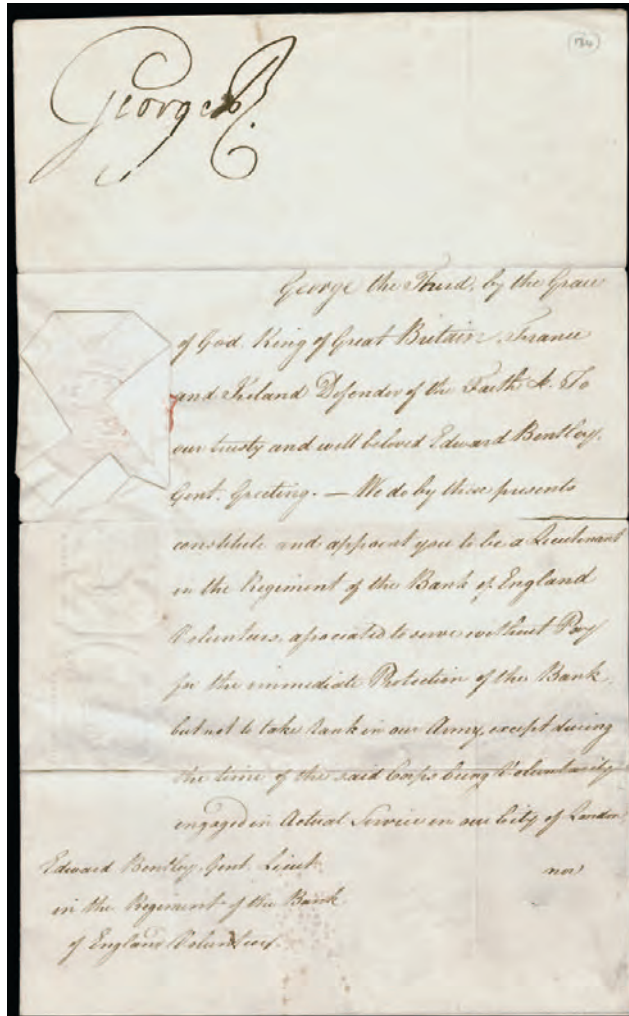 (184)
George R.
George the Third, by the Grace
of God King of Great Britain, France
and Ireland Defender of the Faith &c. To
our trusty and well beloved Edward Bentley,
Gent. Greeting. — We do by these presents
constitute and appoint you to be a Lieutenant
in the Regiment of the Bank of England
Volunteers, associated to serve without Pay
for the immediate Protection of the Bank,
but not to take rank in our Army, except during
the time of the said Corps being Voluntarily
engaged in Actual Service in our City of London,
nor
Edward Bentley, Gent. Lieut.
in the Regiment of the Bank
of England Volunteers.